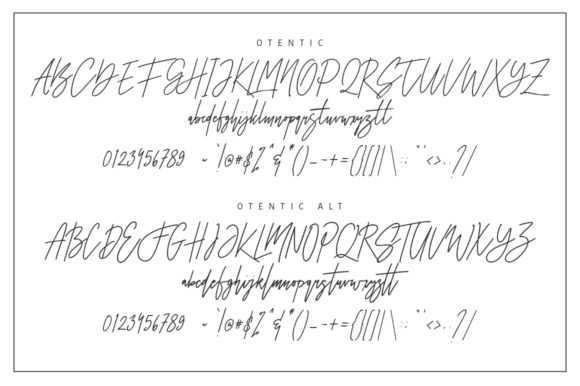 OTENTIC
ABCDEFGHIJKLMNOPQRSTUVWXYZ
abcdefghijklmnopqrstuvwxyz
0123456789 ~ `!@#$%^&*()_-+={}[]|\:;"'<>,.?/
OTENTIC ALT
ABCDEFGHIJKLMNOPQRSTUVWXYZ
abcdefghijklmnopqrstuvwxyz
0123456789 ~ `!@#$%^&*()_-+={}[]|\:;"'<>,.?/